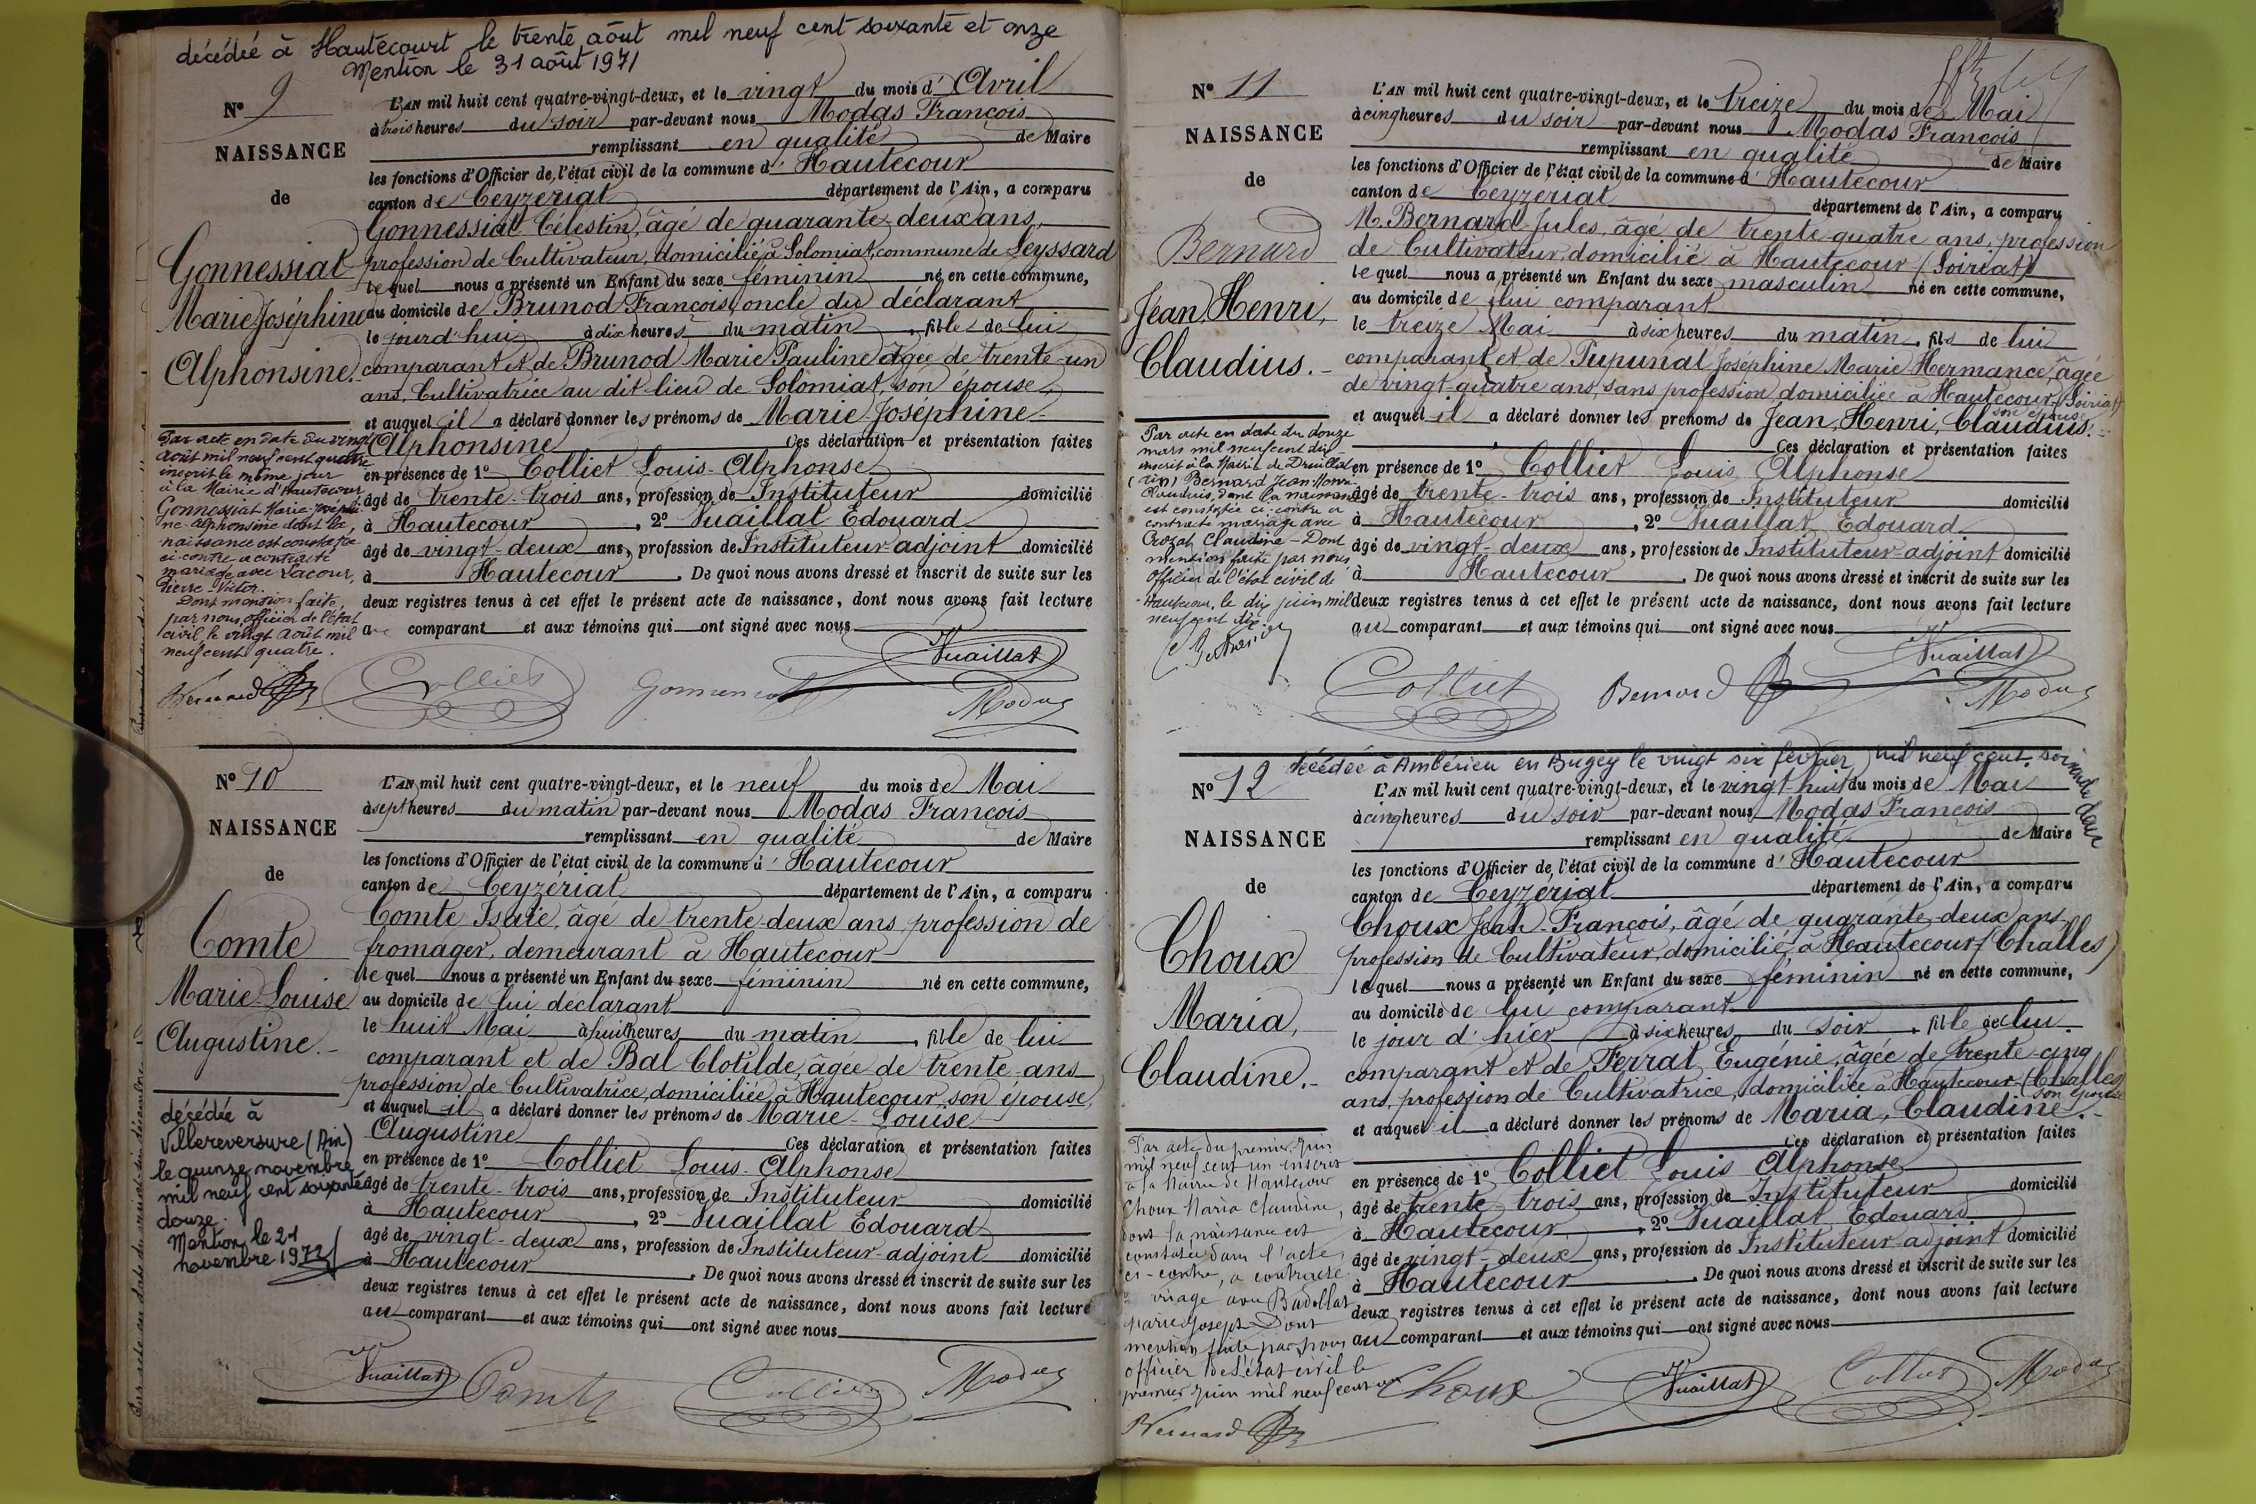 décédée à Hautecourt le trente août mil neuf cent soixante et onze
Mention le 31 août 1971
N° 9
NAISSANCE
de
Gonnessiat
Marie Joséphine
Alphonsine.
L'AN mil huit cent quatre-vingt-deux, et le vingt du mois d'Avril
à trois heures du soir par-devant nous Modas François
remplissant en qualité de Maire
les fonctions d'Officier de l'état civil de la commune d'Hautecour
canton de Ceyzériat département de l'Ain, a comparu
Gonnessiat Célestin, âgé de quarante-deux ans,
profession de Cultivateur, domicilié à Solomiat, commune de Leyssard
lequel nous a présenté un Enfant du sexe féminin né en cette commune,
au domicile de Brunod François, oncle du déclarant
le jourd'hui à dix heures du matin, fille de lui
comparant et de Brunod Marie Pauline âgée de trente-un
ans, Cultivatrice au dit lieu de Solomiat, son épouse,
et auquel il a déclaré donner les prénoms de Marie Joséphine
Alphonsine Ces déclaration et présentation faites
en présence de 1° Colliet Louis-Alphonse
âgé de trente-trois ans, profession de Instituteur domicilié
à Hautecour, 2° Vuaillat Edouard
âgé de vingt-deux ans, profession de Instituteur-adjoint domicilié
à Hautecour. De quoi nous avons dressé et inscrit de suite sur les
deux registres tenus à cet effet le présent acte de naissance, dont nous avons fait lecture
au comparant et aux témoins qui ont signé avec nous
Par acte en date du vingt
Août mil neuf cent quatre
inscrit le même jour
à la Mairie d'Hautecour
Gonnessiat Marie-Joséphi-
ne-Alphonsine dont la
naissance est constatée
ci-contre a contracté
mariage avec Lacour,
Pierre-Victor.
Dont mention faite
par nous officier de l'état
civil, le vingt Août mil
neuf cent quatre.
Bernard Colliet Gonnessiat Vuaillat
Modas
N° 10
NAISSANCE
de
Comte
Marie-Louise
Augustine.
L'AN mil huit cent quatre-vingt-deux, et le neuf du mois de Mai
à sept heures du matin par-devant nous Modas François
remplissant en qualité de Maire
les fonctions d'Officier de l'état civil de la commune d'Hautecour
canton de Ceyzériat département de l'Ain, a comparu
Comte Isaïe, âgé de trente-deux ans profession de
fromager, demeurant à Hautecour
lequel nous a présenté un Enfant du sexe féminin né en cette commune,
au domicile de lui déclarant
le huit Mai à huit heures du matin, fille de lui
comparant et de Bal Clotilde, âgée de trente ans
profession de Cultivatrice, domiciliée à Hautecour, son épouse,
et auquel il a déclaré donner les prénoms de Marie-Louise
Augustine Ces déclaration et présentation faites
en présence de 1° Colliet Louis-Alphonse
âgé de trente-trois ans, profession de Instituteur domicilié
à Hautecour, 2° Vuaillat Edouard
âgé de vingt-deux ans, profession de Instituteur-adjoint domicilié
à Hautecour. De quoi nous avons dressé et inscrit de suite sur les
deux registres tenus à cet effet le présent acte de naissance, dont nous avons fait lecture
au comparant et aux témoins qui ont signé avec nous
décédée à
Villereversure (Ain)
le quinze novembre
mil neuf cent soixante
douze.
Mention le 21
novembre 1972
Vuaillat Comte Colliet Modas
N° 11
NAISSANCE
de
Bernard
Jean, Henri,
Claudius.
L'AN mil huit cent quatre-vingt-deux, et le treize du mois de Mai
à cinq heures du soir par-devant nous Modas François
remplissant en qualité de Maire
les fonctions d'Officier de l'état civil de la commune d'Hautecour
canton de Ceyzériat département de l'Ain, a comparu
M. Bernard Jules, âgé de trente-quatre ans, profession
de Cultivateur, domicilié à Hautecour (Soiriat)
lequel nous a présenté un Enfant du sexe masculin né en cette commune,
au domicile de lui comparant
le treize Mai à six heures du matin, fils de lui
comparant et de Pupunat Joséphine Marie Hermance, âgée
de vingt-quatre ans, sans profession domiciliée à Hautecour (Soiriat)
son épouse
et auquel il a déclaré donner les prénoms de Jean, Henri, Claudius.
Ces déclaration et présentation faites
en présence de 1° Colliet Louis Alphonse
âgé de trente-trois ans, profession de Instituteur domicilié
à Hautecour, 2° Vuaillat Edouard
âgé de vingt-deux ans, profession de Instituteur-adjoint domicilié
à Hautecour. De quoi nous avons dressé et inscrit de suite sur les
deux registres tenus à cet effet le présent acte de naissance, dont nous avons fait lecture
au comparant et aux témoins qui ont signé avec nous
Par acte en date du douze
mars mil neuf cent dix
inscrit à la Mairie de Druillat
(Ain) Bernard Jean-Henri-
Claudius, dont la naissance
est constatée ci-contre a
contracté mariage avec
Crozat Claudine - Dont
mention faite par nous
officier de l'état civil de
Hautecour, le dix juin mil
neuf cent dix
Colliet Bernard Vuaillat
Modas
décédée à Ambérieu en Bugey le vingt six février mil neuf cent soixante deux
N° 12
NAISSANCE
de
Choux
Maria,
Claudine.
L'AN mil huit cent quatre-vingt-deux, et le vingt-huit du mois de Mai
à cinq heures du soir par-devant nous Modas François
remplissant en qualité de Maire
les fonctions d'Officier de l'état civil de la commune d'Hautecour
canton de Ceyzériat département de l'Ain, a comparu
Choux Jean-François, âgé de quarante-deux ans
profession de Cultivateur, domicilié à Hautecour (Challes)
lequel nous a présenté un Enfant du sexe féminin né en cette commune,
au domicile de lui comparant
le jour d'hier à six heures du soir, fille de lui
comparant et de Ferrat Eugénie, âgée de trente-cinq
ans, profession de Cultivatrice, domiciliée à Hautecour (Challes)
son épouse
et auquel il a déclaré donner les prénoms de Maria, Claudine.
Ces déclaration et présentation faites
en présence de 1° Colliet Louis Alphonse
âgé de trente trois ans, profession de Instituteur domicilié
à Hautecour, 2° Vuaillat Edouard
âgé de vingt-deux ans, profession de Instituteur-adjoint domicilié
à Hautecour. De quoi nous avons dressé et inscrit de suite sur les
deux registres tenus à cet effet le présent acte de naissance, dont nous avons fait lecture
au comparant et aux témoins qui ont signé avec nous
Par acte du premier Juin
mil neuf cent un inscrit
à la Mairie de Hautecour
Choux Maria Claudine,
dont la naissance est
constatée dans l'acte
ci-contre, a contracté
riage avec
Joseph Dont
mention faite par nous
officier de l'état civil le
premier Juin mil neuf cent un
Bernard Choux Vuaillat Colliet Modas